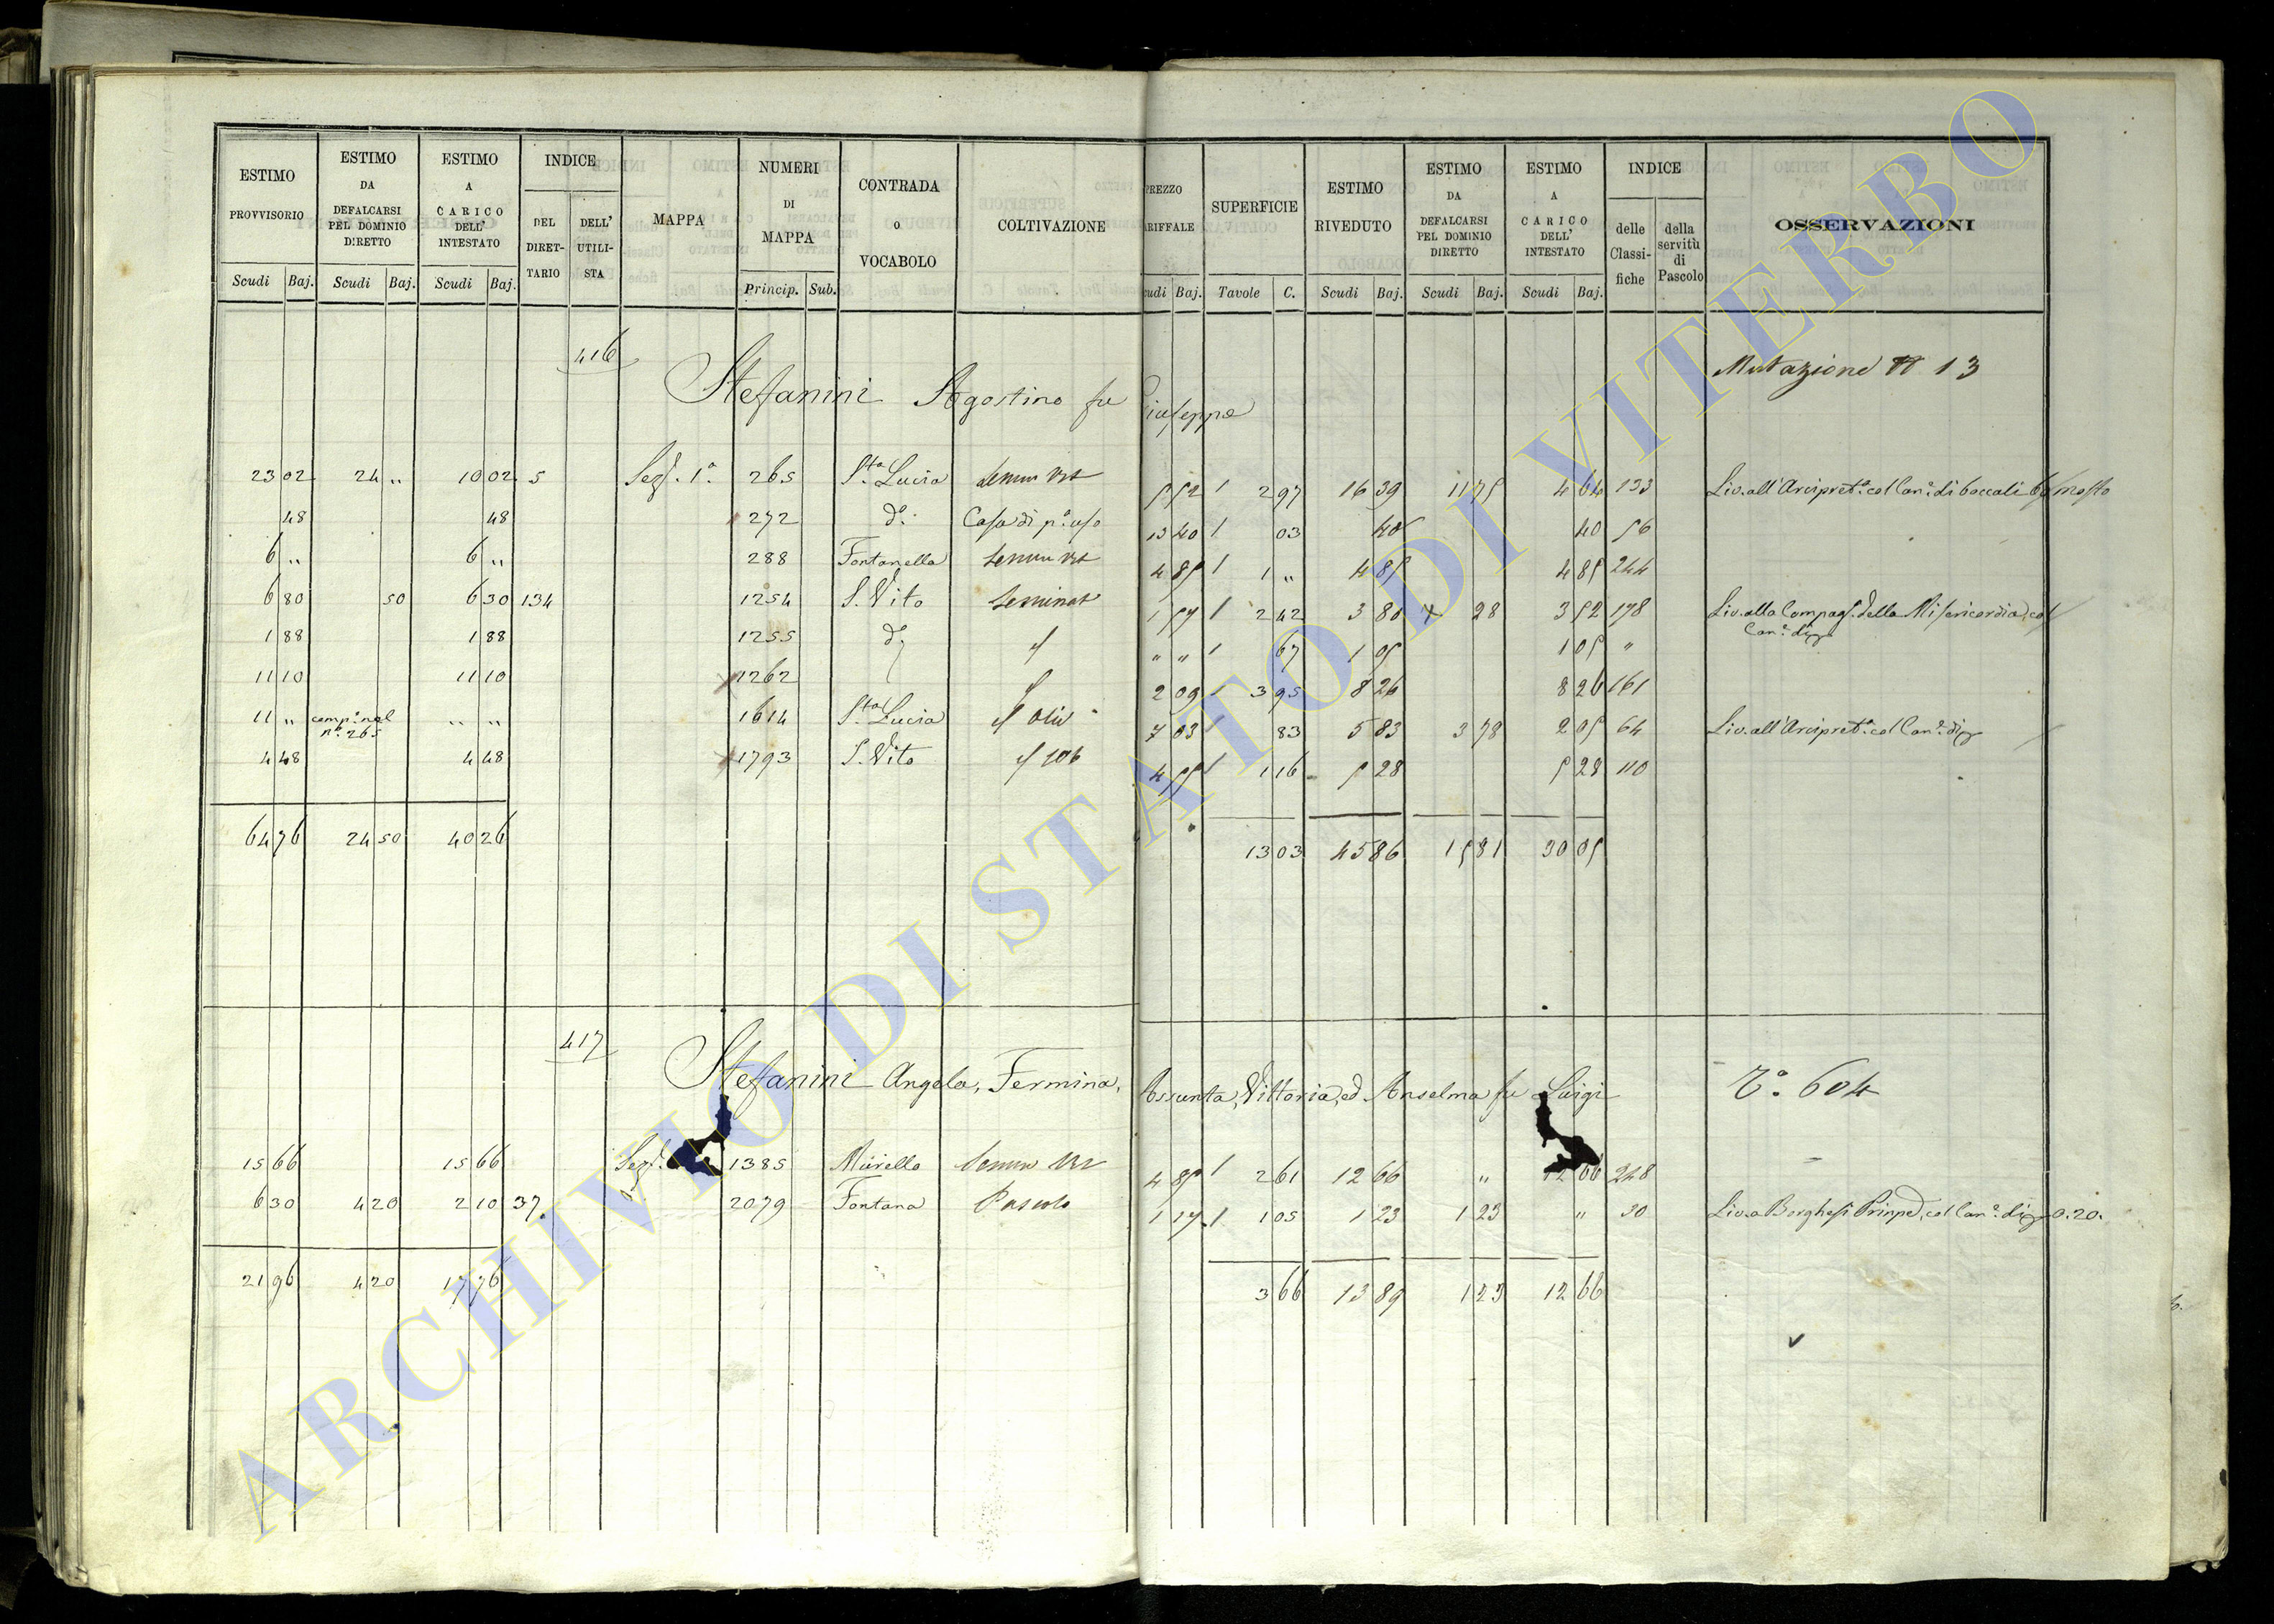 ESTIMO PROVVISORIO Scudi Baj. ESTIMO DA DEFALCARSI PEL DOMINIO DIRETTO Scudi Baj. ESTIMO A CARICO DELL' INTESTATO Scudi Baj. INDICE DEL DIRETTARIO DELL' UTILISTA MAPPA NUMERI DI MAPPA Princip. Sub. CONTRADA O VOCABOLO COLTIVAZIONE
PREZZO TARIFFALE Scudi Baj. SUPERFICIE Tavole C. ESTIMO RIVEDUTO Scudi Baj. ESTIMO DA DEFALCARSI PEL DOMINIO DIRETTO Scudi Baj. ESTIMO A CARICO DELL' INTESTATO Scudi Baj. INDICE delle Classifiche della servitù di Pascolo OSSERVAZIONI
416
Stefanini Agostino fu Giuseppe
Mutazione N 13
23 02 24 " 10 02 5 Sez. 1a 265 Sta Lucia 5 52 1 2 97 16 39 11 75 4 64 133 Liv. all'Arcipret. col Can. di boccali 60 mosto
48 48 272 do Casa di po uso 13 40 1 03 40 40 56
6 " 6 " 288 Fontanella 4 85 1 1 " 4 85 4 85 244
6 80 50 6 30 134 1254 S. Vito Seminat 1 57 1 2 42 3 80 28 3 52 178 Liv. alla Compag. della Misericordia col
Can. di
1 88 1 88 1255 do " " 1 67 1 05 1 05 "
11 10 11 10 1262 2 09 1 3 95 8 26 8 26 161
11 " comp. nel " " 1614 Sta Lucia oliv 7 03 1 83 5 83 3 78 2 05 64 Liv. all'Arcipret. col Can. di
no 265
4 48 4 48 1793 S. Vito 4 55 1 1 16 5 28 5 28 110
64 76 24 50 40 26 13 03 45 86 15 81 30 05
417
Stefanini Angela, Fermina, Assunta, Vittoria, ed Anselma fu Luigi
Vo. 604
15 66 15 66 Sez. 1385 Murella 4 85 1 2 61 12 66 " 12 66 248
6 30 4 20 2 10 37 2079 Fontana Pascolo 1 17 1 1 05 1 23 1 23 " 30 Liv. a Borghesi Prinpe, col Can. di 0.20.
21 96 4 20 17 76 3 66 13 89 1 23 12 66
ARCHIVIO DI STATO DI VITERBO